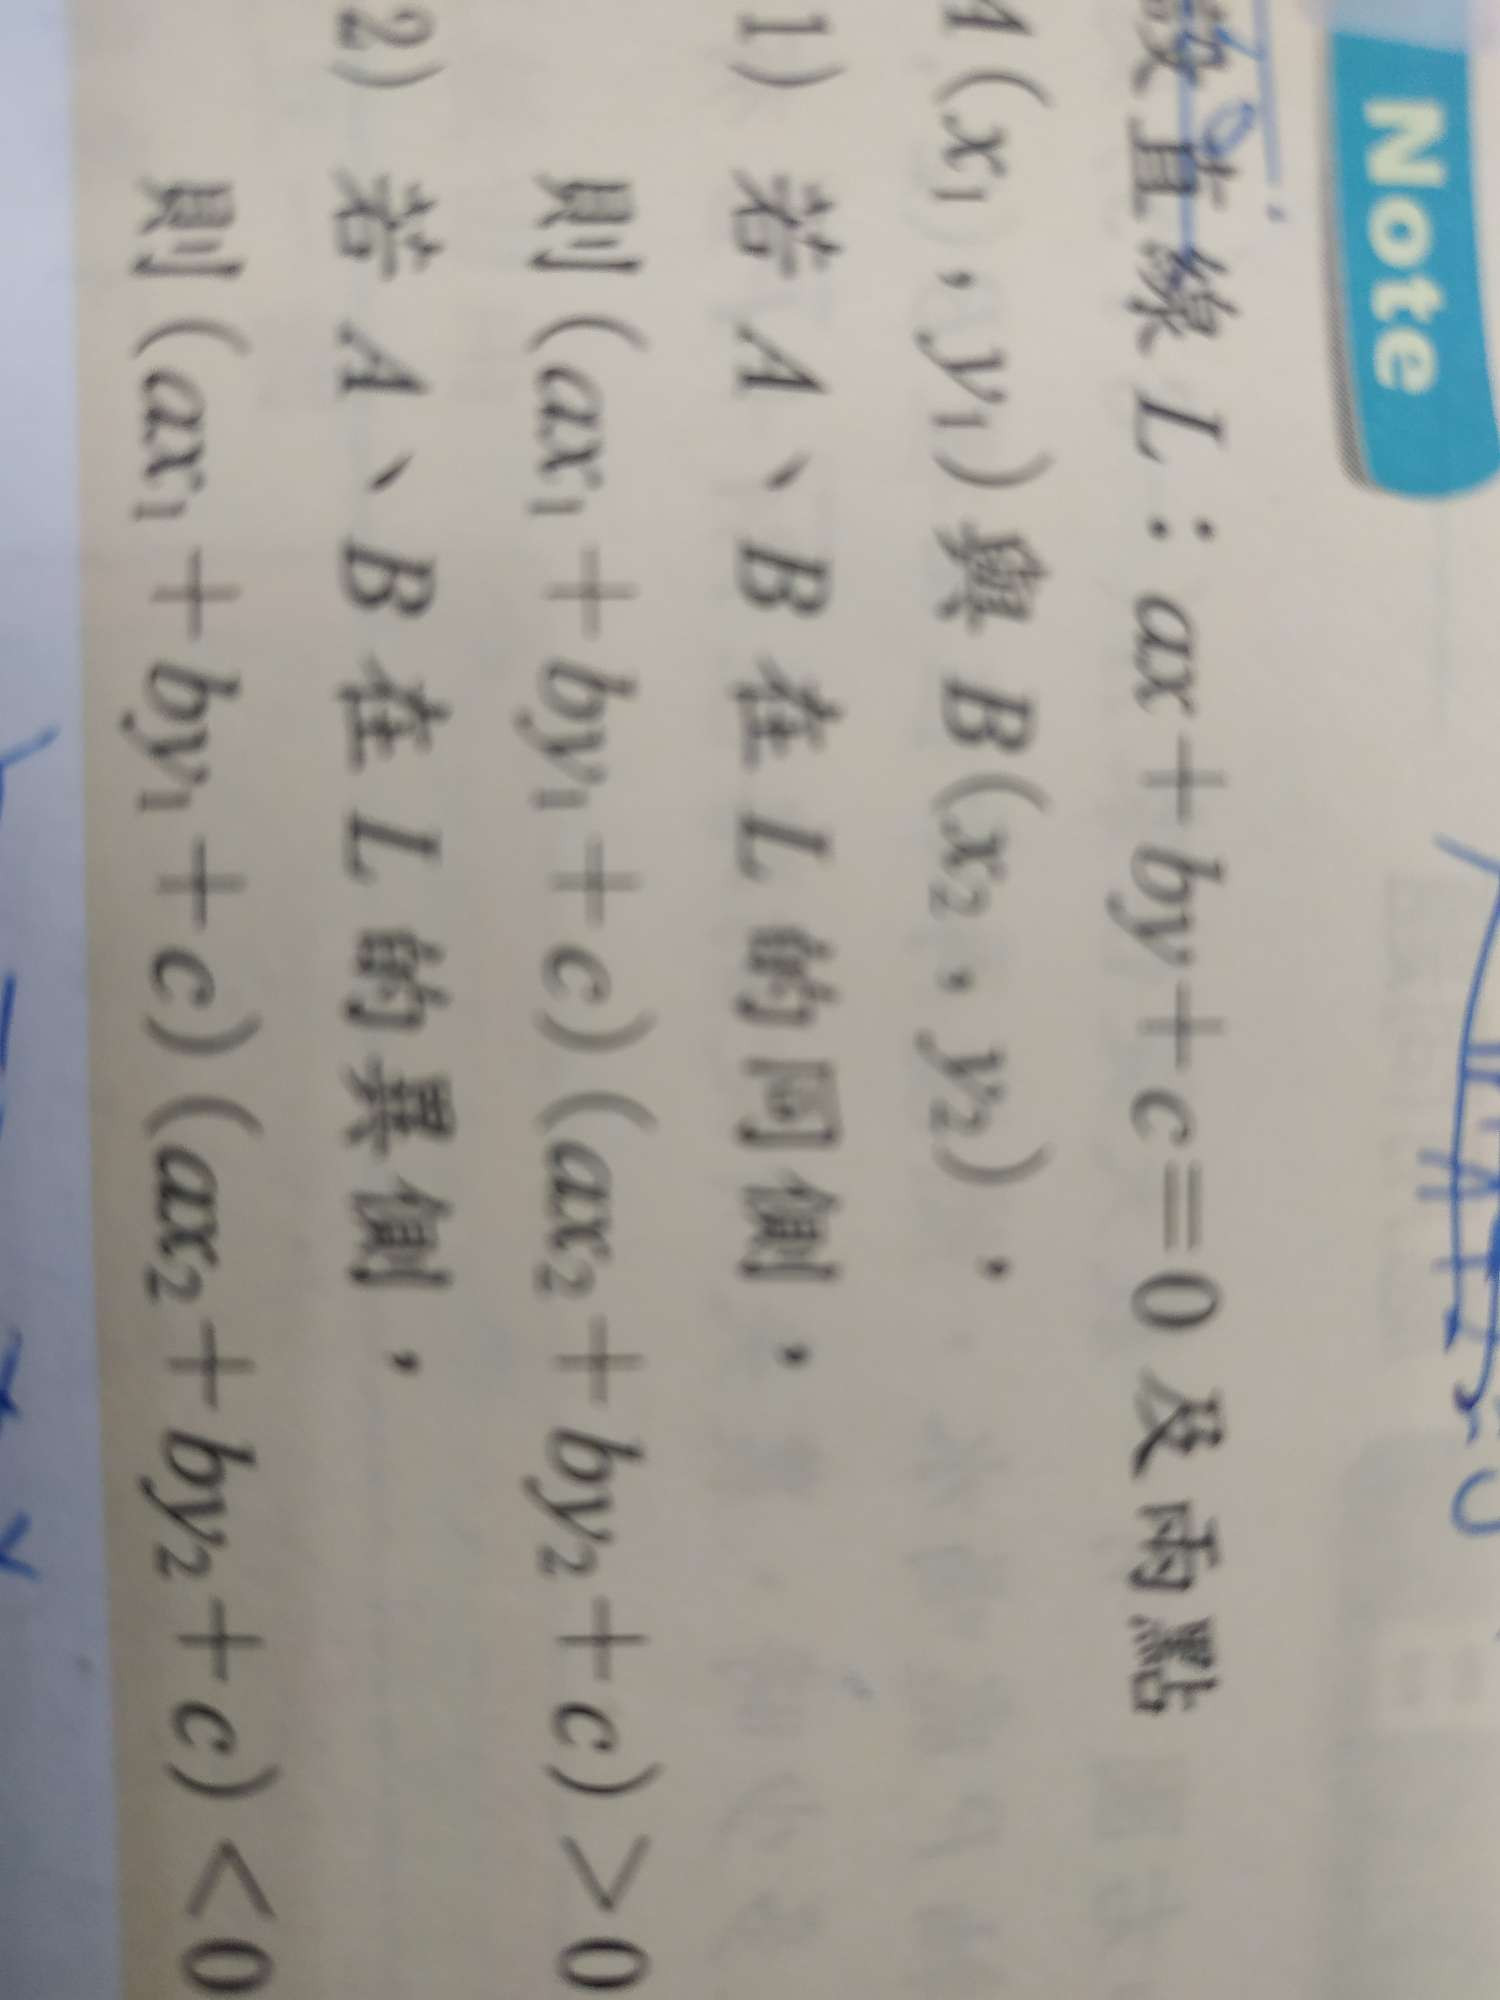 Note
設直線 L：ax＋by＋c＝0 及兩點
A(x₁，y₁)與 B(x₂，y₂)，
1) 若 A、B 在 L 的同側，
則(ax₁＋by₁＋c)(ax₂＋by₂＋c)＞0
2) 若 A、B 在 L 的異側，
則(ax₁＋by₁＋c)(ax₂＋by₂＋c)＜0